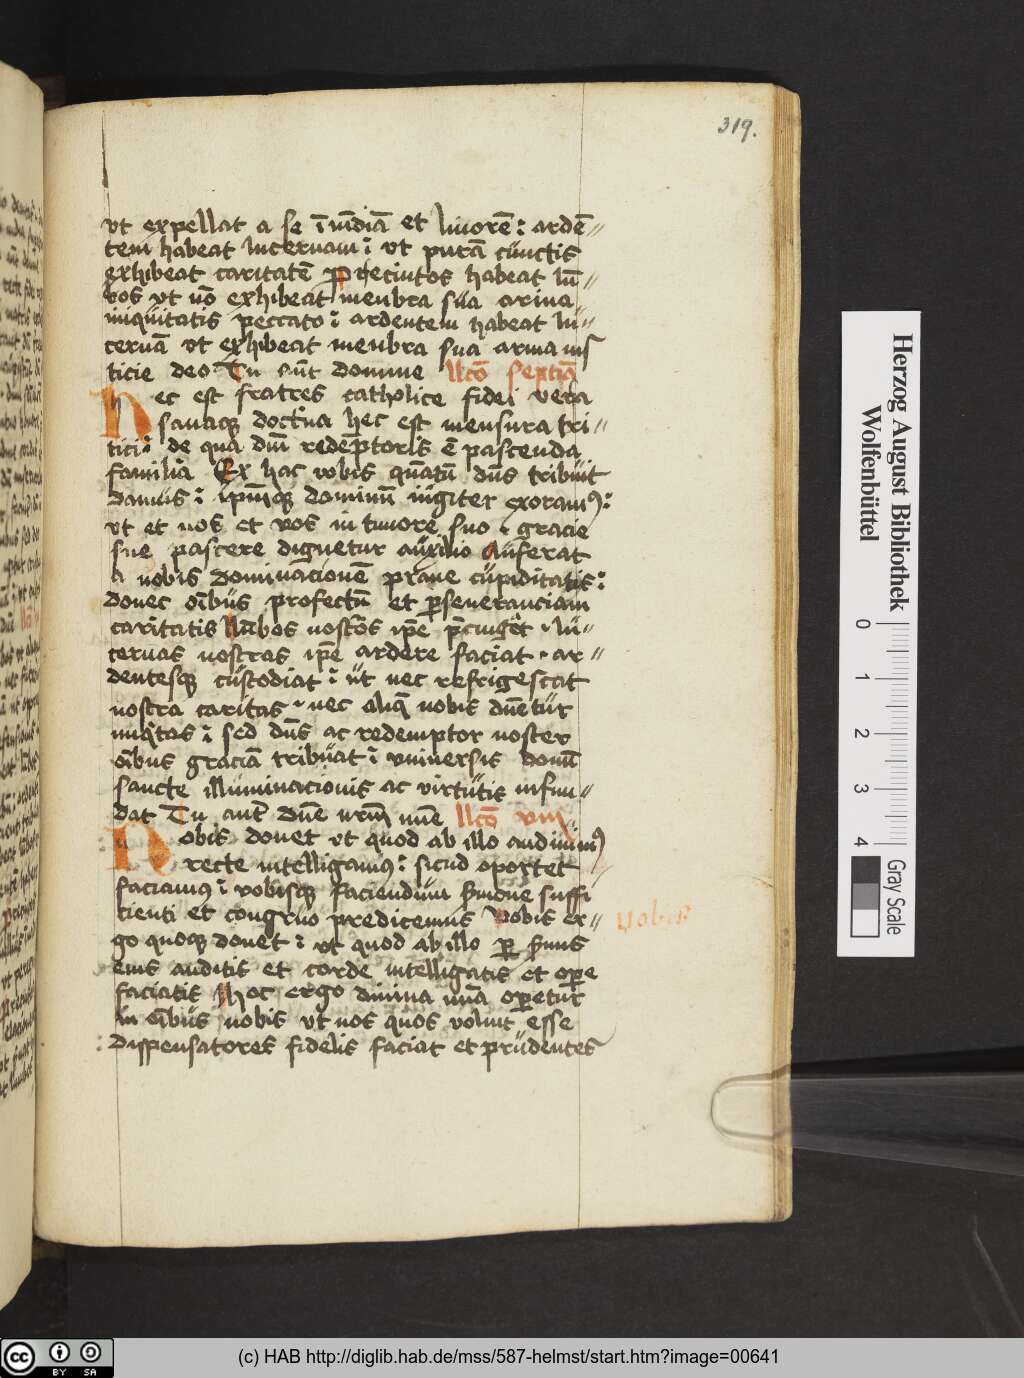 319.
vt expellat a se īuīdiā et liuorē : ardē〃
tem habeat lucernam : vt purā cūnctis
exhibeat caritatē Precintos habeat lū〃
bos vt nō exhibeat menbra sua arma
iniquitatis peccato : ardentem habeat lu〃
cernā vt exhibeat menbra sua arma ius
ticie deo Tu aūt domine llcō septiā
Hec est fratres catholice fidei vera
sanaqꝫ doctͥna hec est mensura tri〃
tici : de qua dn̄i redēptoris ē pascenda
familia Ex hac vobis quātū dn̄s tribuit
damus : ipm̄qꝫ dominū iugiter exoramꝰ :
vt et nos et vos in timore suo . gracie
sue pascere dignetur auxilio Auferat
a nobis dominacionē praue cupiditatis :
donec oībus profectū et ꝑseueranciam
caritatis Lūbos nostros ipē p̄cinget . lu〃
cernas nostras ipē ardere faciat . ar〃
dentesqꝫ custodiat : ut nec refrigescat
nostra caritas . nec aliqͣ nobis dn̄etur
iniqͥtas : sed dn̄s ac redemptor noster
oībus graciā tribuat : vniuersis donū
sancte illuminacionis ac virtutis infun〃
dat Tu autē dn̄e nr̄m mīe llcō viii
Nobis donet vt quod ab illo audiuimꝰ
recte intelligamꝰ : sicud oportet
faciamꝰ : vobisqꝫ faciendum s̄mone suffi
cienti et congruo predicemus Vobis er〃
go quoqꝫ donet : vt quod ab illo ꝑ s̄uus
eius auditis et corde intelligatis et oꝑe
faciatis Hoc ergo diuina mīa oꝑetur
in oībus nobis vt nos quos voluit esse
dispensatores fidelis faciat et prudentes
vobis
Herzog August Bibliothek
Wolfenbüttel
0 1 2 3 4
Gray Scale
cc BY SA
(c) HAB http://diglib.hab.de/mss/587-helmst/start.htm?image=00641